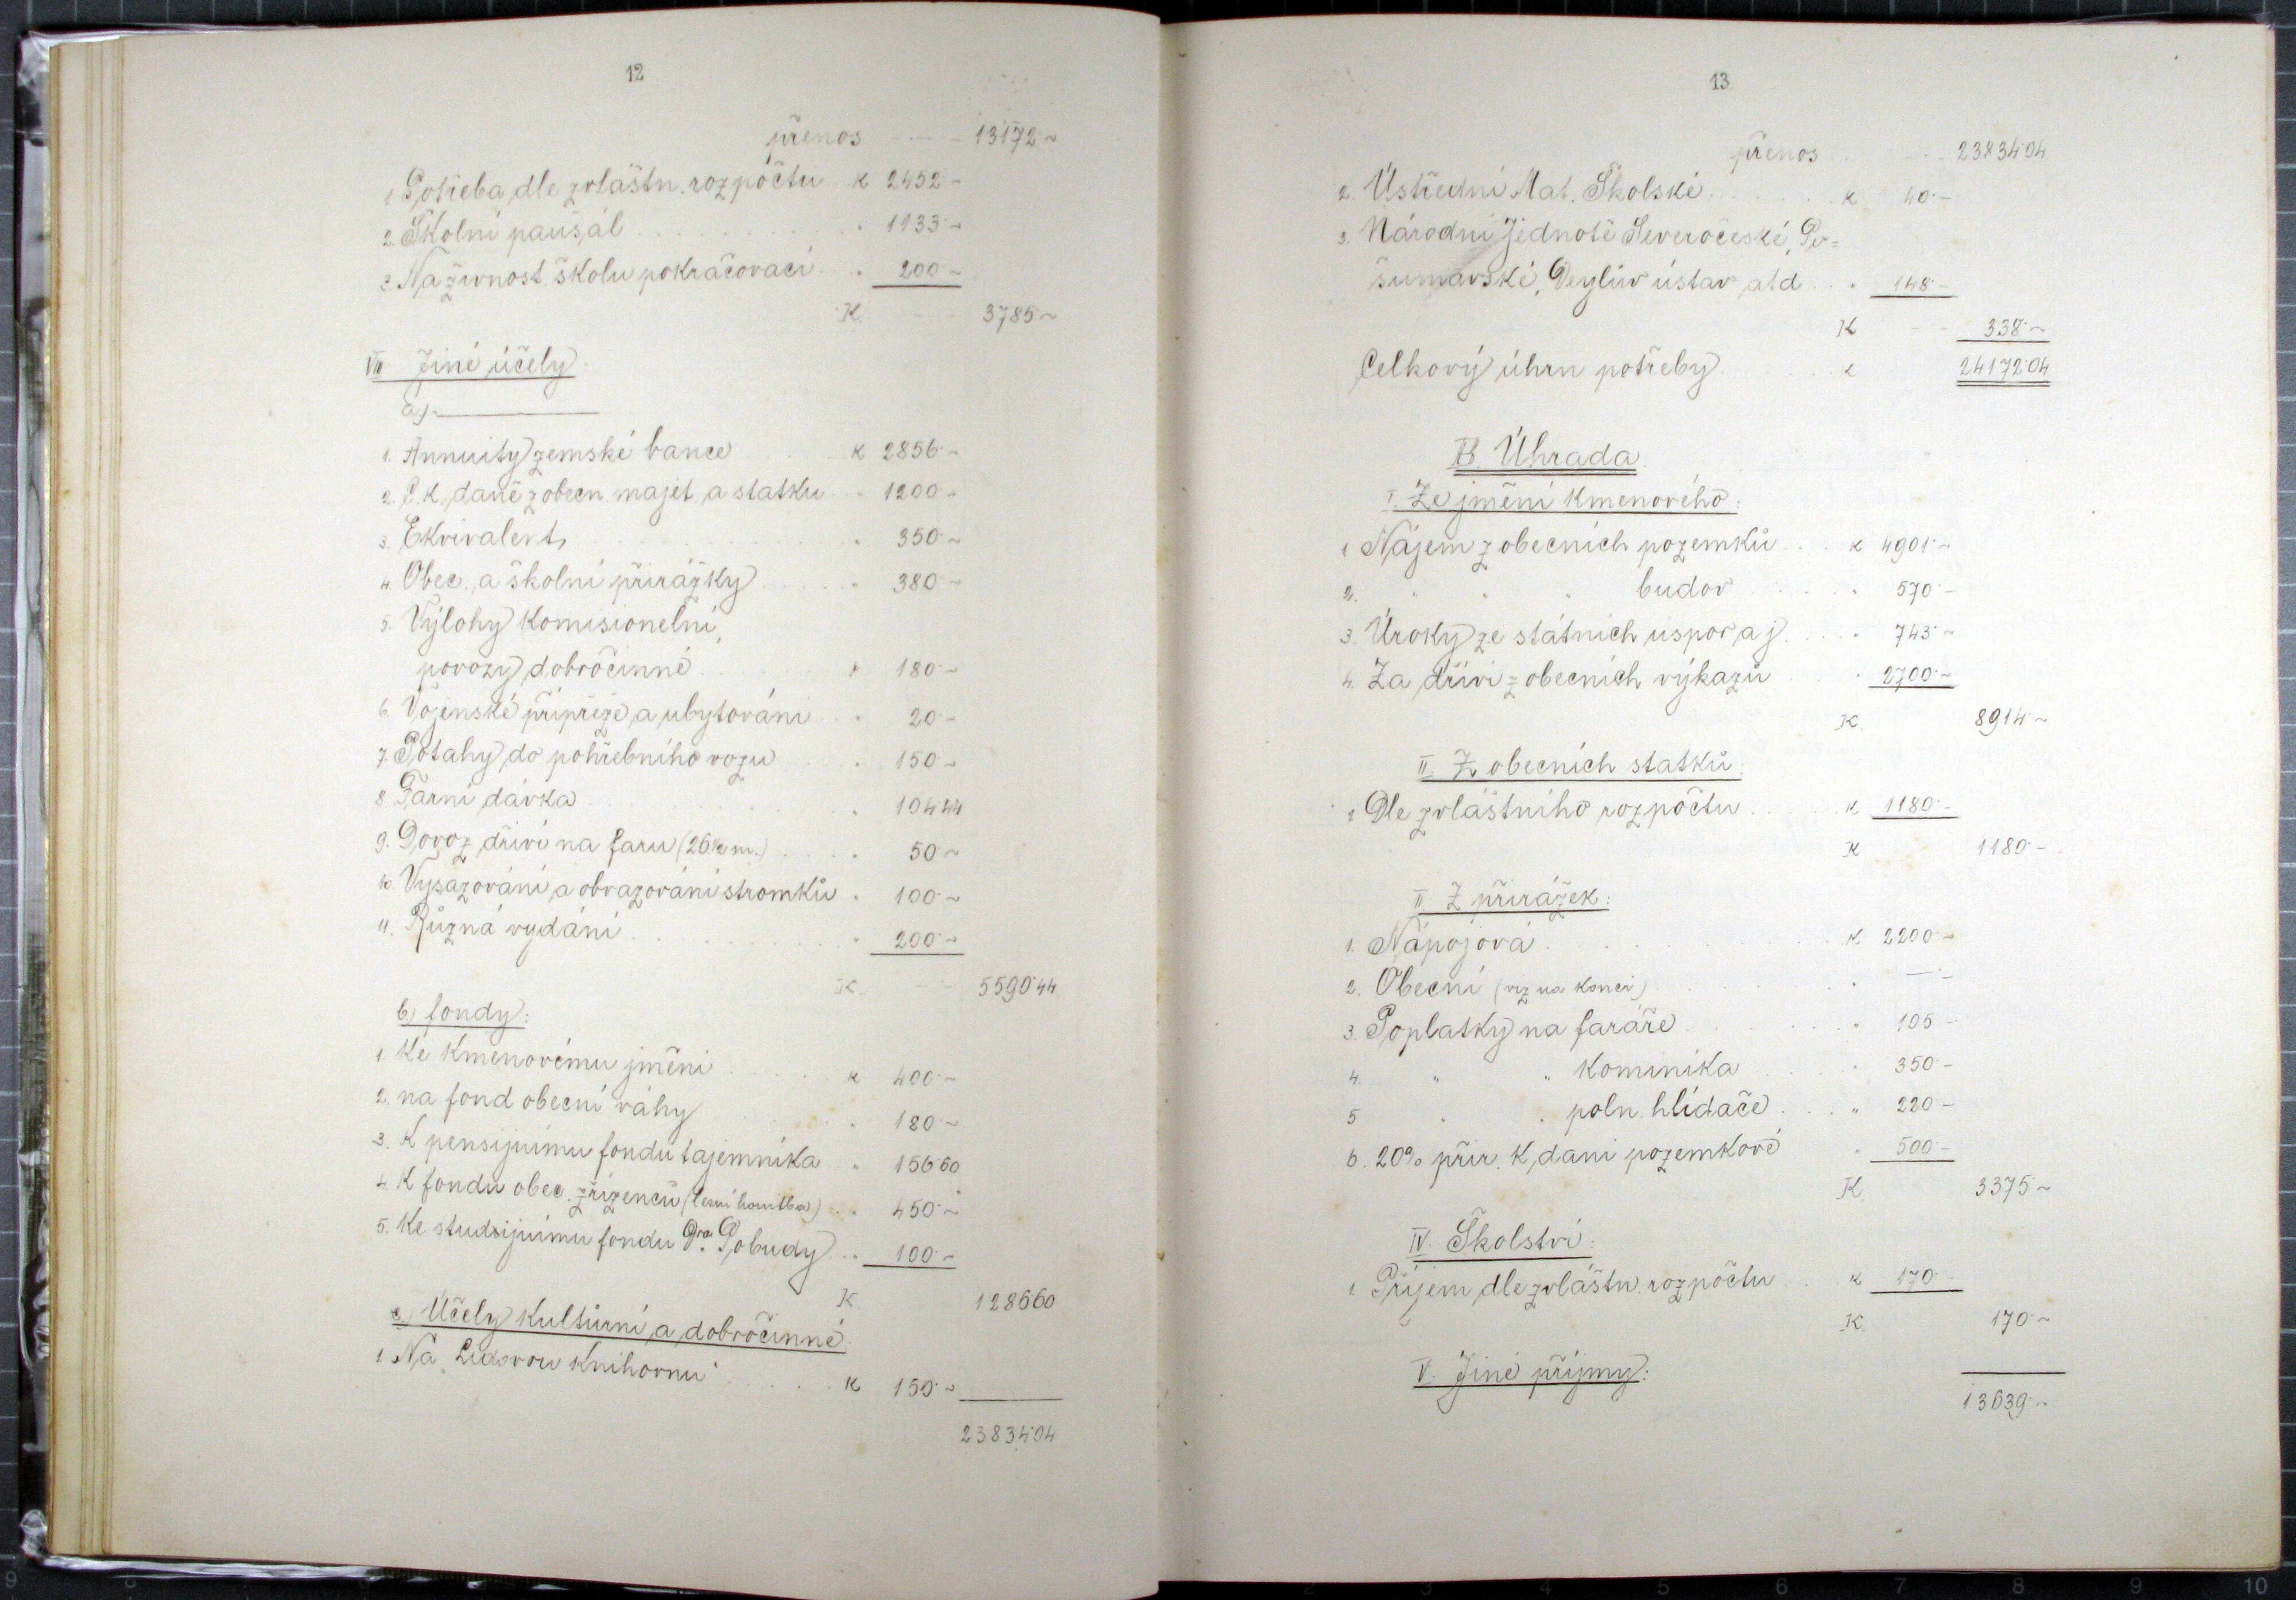 12
přenos - - - 13172·~
1 Potřeba dle zvláštn. rozpočtu K 2452·-
2. Školní paušál . . . . . " 1133·~
3. Na živnost. školu pokračovací " 200·~
K. - - 3785·~
VII Jiné účely.
a) -
1. Annuity zemské bance K 2856·-
2. C. K. daně z obecn. majet. a statku " 1200·-
3. Ekvivalent, . . . . " 350·~
4. Obec. a školní přirážky . . . " 380·-
5. Výlohy Komisionelní,
povozy dobročinné . . " 180·-
6. Vojenské přípřeže a ubytování " 20·-
7. Potahy do pohřebního vozu " 150·-
8 Farní dávka . . . " 104·44
9. Dovoz dříví na faru (26½ m.) . . " 50·~
10. Vysazování a obvazování stromků " 100·~
11. Různá vydání . . . . " 200·~
K. - - 5590·44
b) fondy:
1 Ke Kmenovému jmění . . K 400·~
2. na fond obecní váhy . . " 180·~
3. K pensijnímu fondu tajemníka " 156·60
4. K fondu obec. zřízenců (lesní) " 450·~
5. Ke studijnímu fondu Dra. Pobudy . . " 100·-
K. 1286·60
c) Účely Kulturní a dobročinné.
1 Na "Lidovou Knihovnu" . . . K 150·~
23834·04
13
přenos - - - 23834·04
2. Ústřední Mat. Školské . . . K 40·-
3. Národní Jednotě Severočeské, Po=
šumavské, Deylův ústav atd . . " 148·-
K - - 338·~
Celkový úhrn potřeby . . K 24172·04
B. Úhrada.
I. Ze jmění Kmenového:
1 Nájem z obecních pozemků . . K 4901·~
2. " " " budov . . . " 570·-
3. Úroky ze státních úspor a j. . . " 743·~
4. Za dříví z obecních výkazů . . " 2700·~
K. 8914·~
II. Z obecních statků:
1 Dle zvláštního rozpočtu . . . K 1180·-
K 1180·-
II Z přirážek:
1. Nápojová . . . . . K 2200·~
2. Obecní (viz na konci) . . . " -·-
3. Poplatky na faráře . . . . " 105·-
4. " " Kominíka . . " 350·-
5 " " poln. hlídače . . . " 220·-
6. 20% přir. K dani pozemkové " 500·-
K. 3375·~
IV. Školství:
1. Příjem dle zvláštn. rozpočtu . . K 170·-
K. 170·~
V. Jiné příjmy:
13639·-